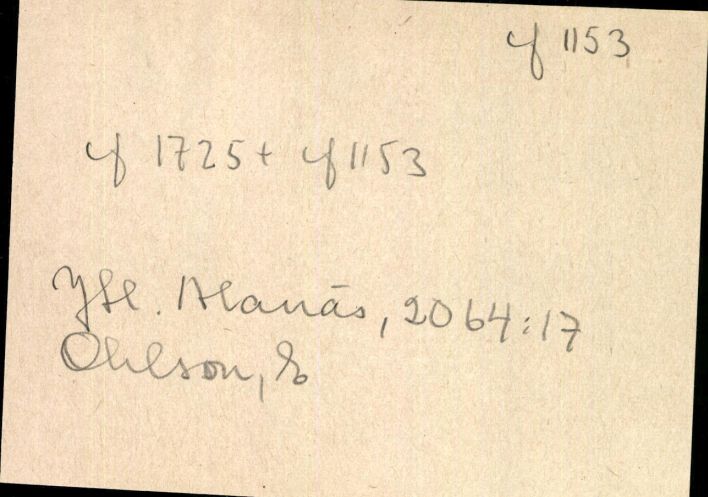 cf 1153
cf 1725 + cf 1153
Alanäs, 2064:17
Ohlson, E